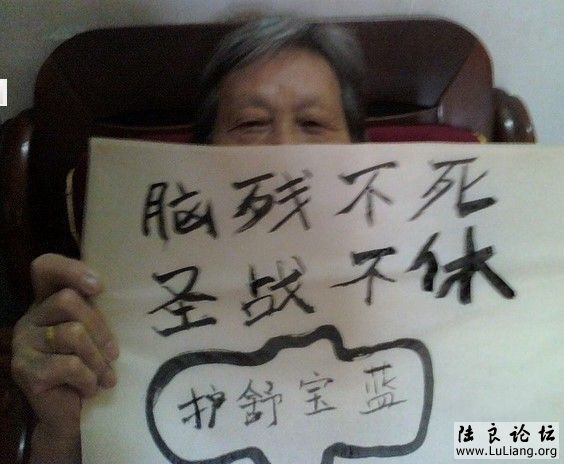 脑残不死
圣战不休
护舒宝蓝
陆良论坛
www.LuLiang.org